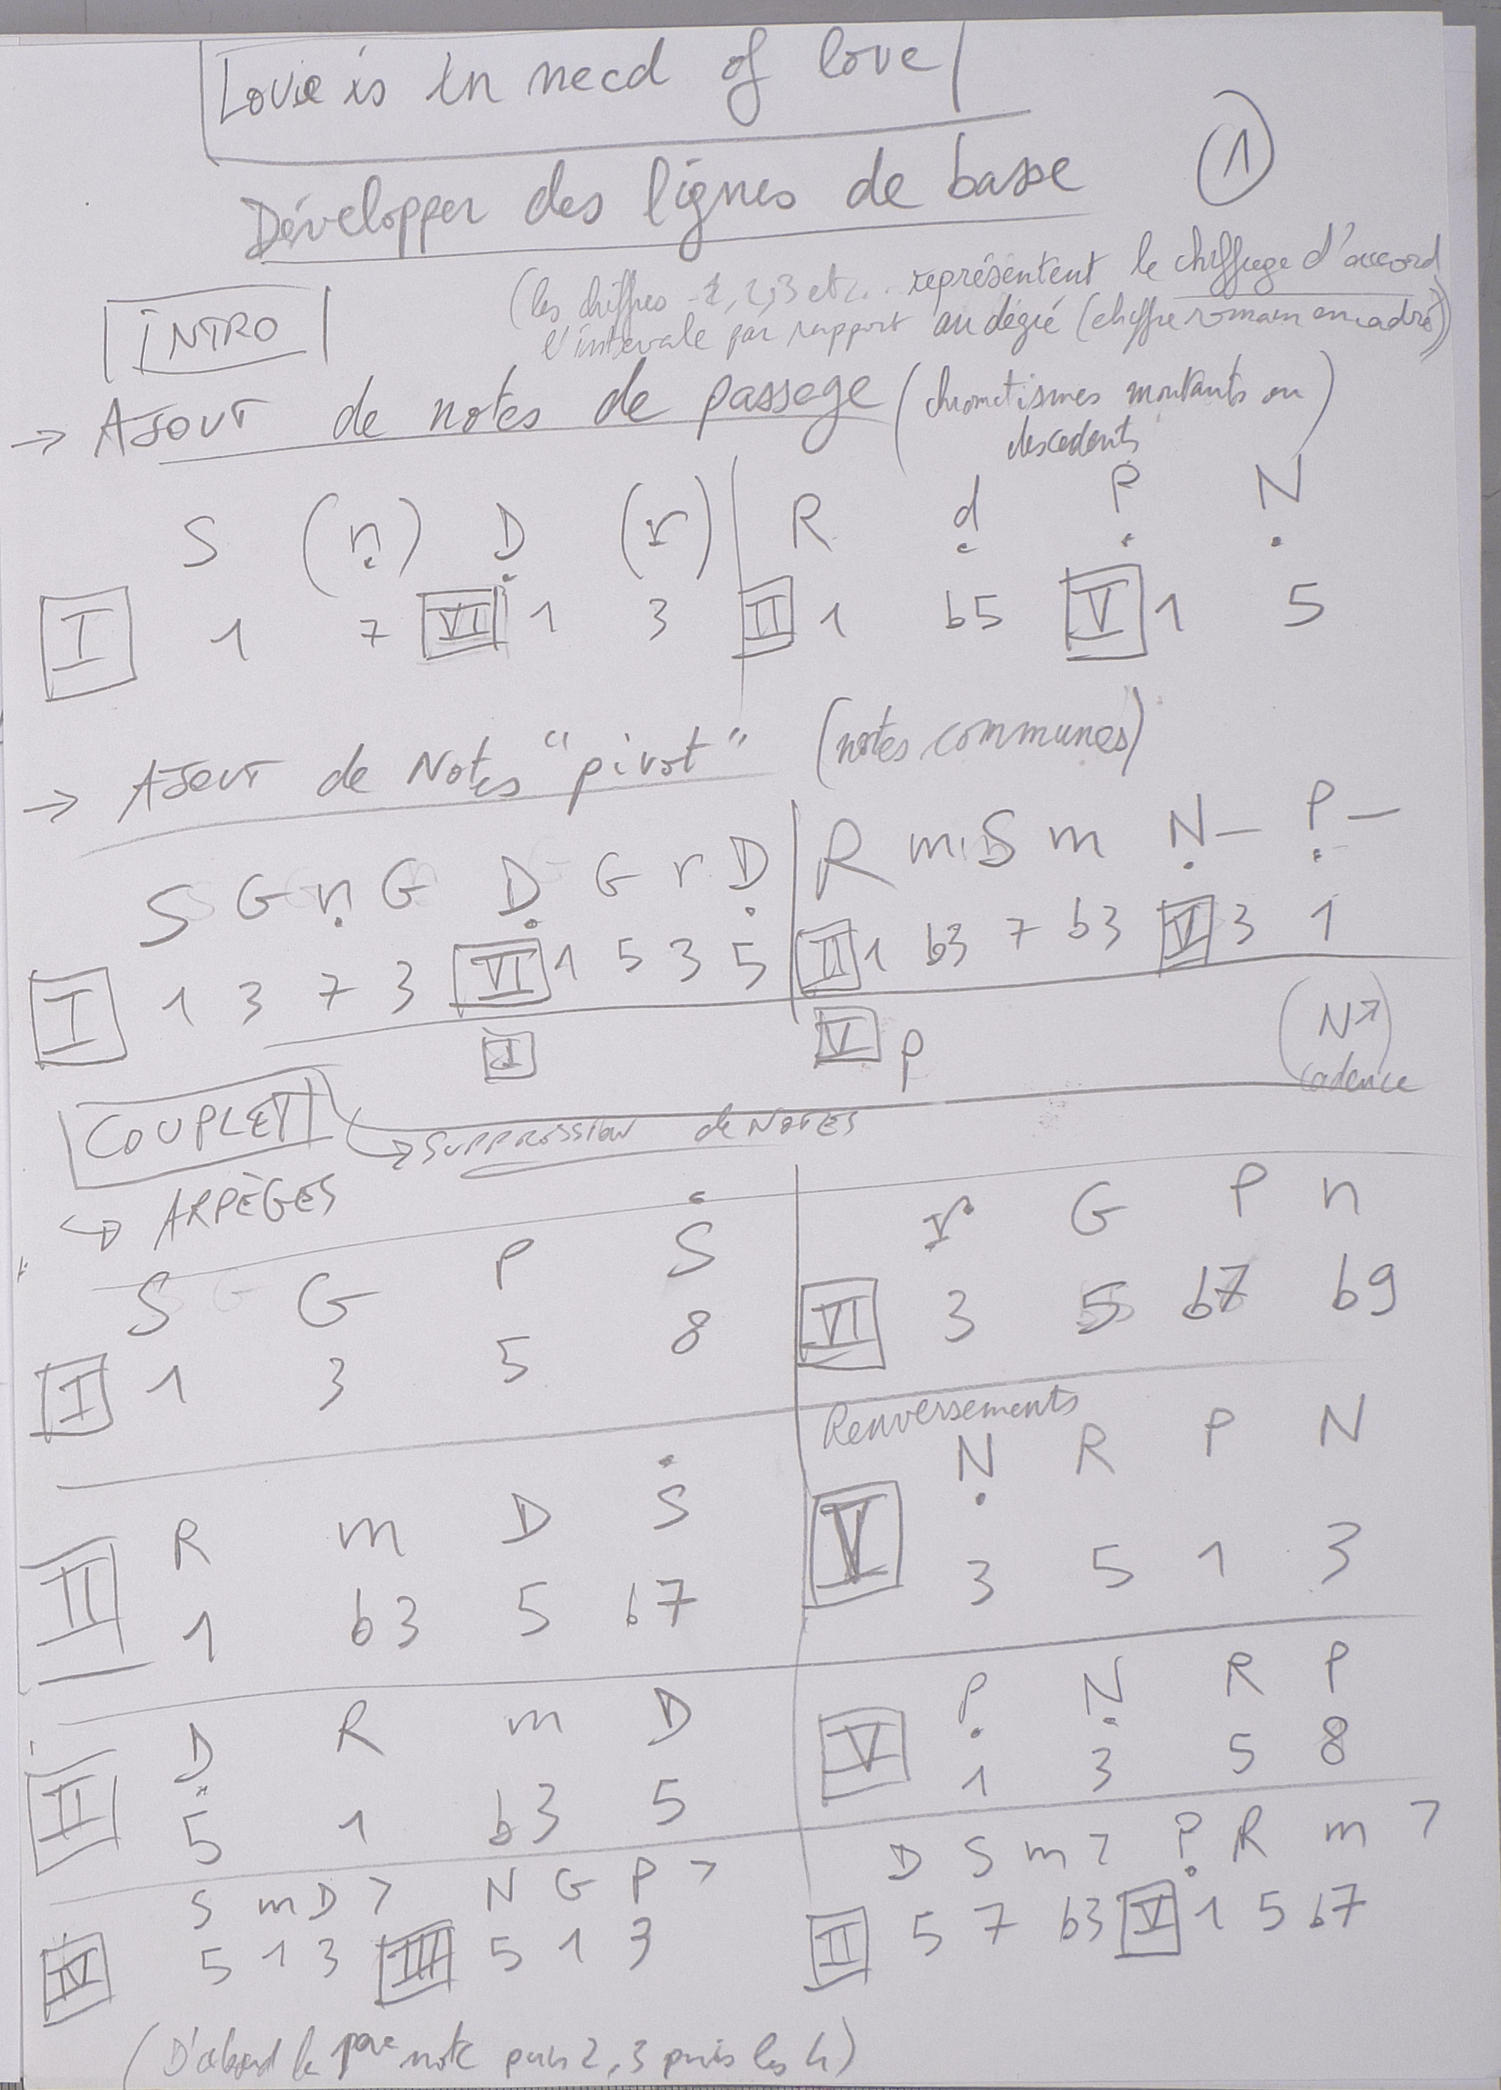 Love is in need of love
Développer des lignes de basse
1
(les chiffres 1, 2, 3 etc... représentent le chiffrage d'accord
l'intervale par rapport au dégré (chiffre romain encadré))
INTRO
→ AJOUT de notes de passage (chromatismes montants ou
descedants)
S (n) D (r) | R d P N
I 1 7 VI 1 3 II 1 b5 V 1 5
→ AJOUT de Notes "pivot" (notes communes)
S G n G D G r D | R m S m N – P –
I 1 3 7 3 VI 1 5 3 5 II 1 b3 7 b3 V 3 1
I V P (N↗)
cadence
COUPLET → SUPPRESSION de NOTES
↳ ARPÈGES
S G P S r G P n
I 1 3 5 8 VI 3 5 b7 b9
Renversements
R m D S N R P N
II 1 b3 5 b7 V 3 5 1 3
D R m D P N R P
II 5 1 b3 5 V 1 3 5 8
S m D 7 N G P 7 D S m 7 P R m 7
IV 5 1 3 III 5 1 3 II 5 7 b3 V 1 5 b7
(D'abord la note puis 2, 3 puis les 4)